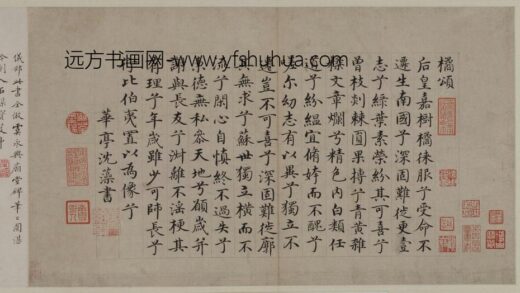 远方书画网-www.yfshuhua.com
橘頌
后皇嘉樹橘徠服兮受命不
遷生南國兮深固難徙更壹
志兮綠葉素榮紛其可喜兮
曾枝剡棘圓果摶兮青黃雜
糅文章爛兮精色內白類任
道兮紛緼宜脩姱而不醜兮
嗟爾幼志有以異兮獨立不
遷豈不可喜兮深固難徙廓
其無求兮蘇世獨立橫而不
流兮閉心自慎終不過失兮
秉德無私參天地兮願歲并
謝與長友兮淑離不淫梗其
有理兮年歲雖少可師長兮
行比伯夷置以為像兮
華亭沈藻書
此書全倣虞永興廟堂碑